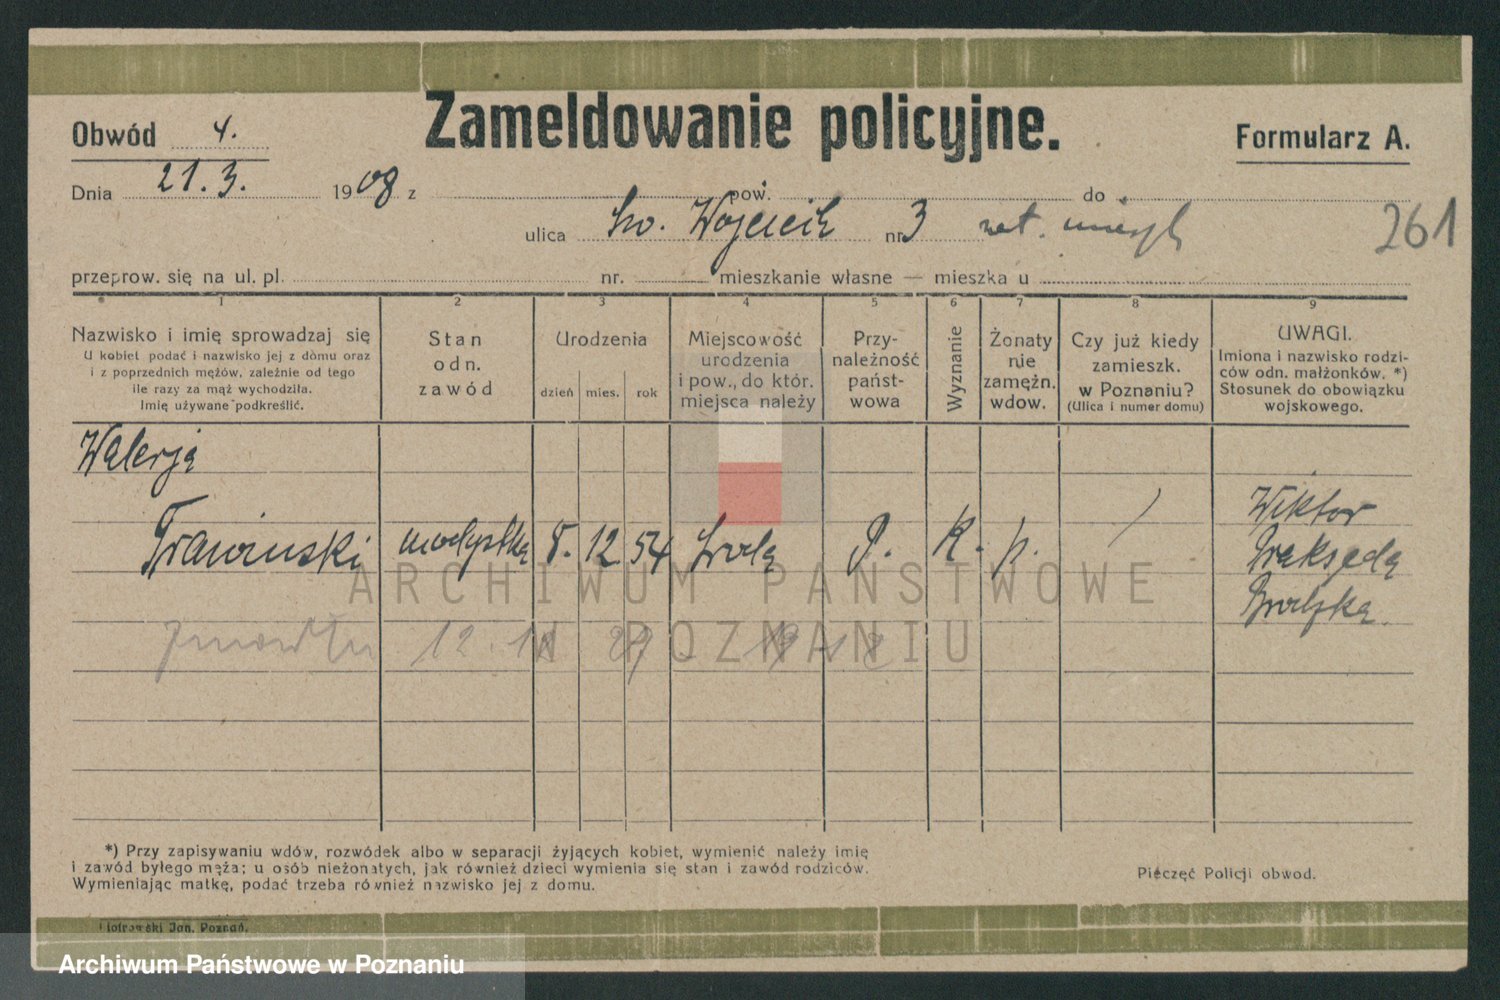 Zameldowanie policyjne.
Obwód 4.
Formularz A.
Dnia 21. 3. 1908 z pow. do
ulica św. Wojciech nr 3
261
przeprow. się na ul. pl. nr. mieszkanie własne — mieszka u
1 2 3 4 5 6 7 8 9
Nazwisko i imię sprowadzaj się
U kobiet podać i nazwisko jej z domu oraz
i z poprzednich mężów, zależnie od tego
ile razy za mąż wychodziła.
Imię używane podkreślić.
Stan
odn.
zawód
Urodzenia
dzień mies. rok
Miejscowość
urodzenia
i pow., do któr.
miejsca należy
Przy-
należność
państ-
wowa
Wyznanie
Żonaty
nie
zamężn.
wdow.
Czy już kiedy
zamieszk.
w Poznaniu?
(Ulica i numer domu)
UWAGI.
Imiona i nazwisko rodzi-
ców odn. małżonków. *)
Stosunek do obowiązku
wojskowego.
Walerja
Trawinski modystka 8. 12 54 P. K. p.
Wiktor
Prakseda
zmarła 12. 29
ARCHIWUM PAŃSTWOWE
W POZNANIU
*) Przy zapisywaniu wdów, rozwódek albo w separacji żyjących kobiet, wymienić należy imię
i zawód byłego męża; u osób nieżonatych, jak również dzieci wymienia się stan i zawód rodziców.
Wymieniając matkę, podać trzeba również nazwisko jej z domu.
Pieczęć Policji obwod.
Piotrowski Jan, Poznań.
Archiwum Państwowe w Poznaniu